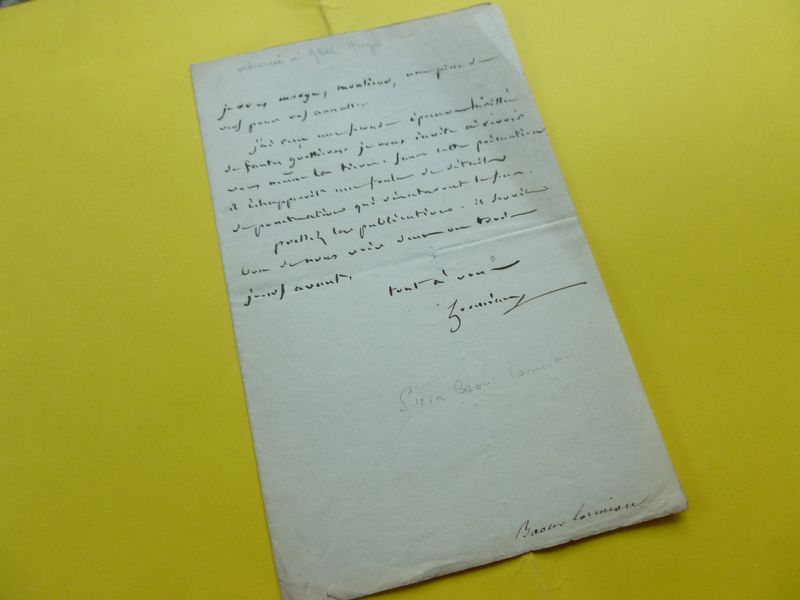 adressé à Abel Hugo
je vous envoye, monsieur, une pièce de
vers pour vos annales.
j'ai reçu une seconde épreuve
de fautes je vous invite à revoir
vous même la tierce. sans cette précaution
il échapperoit une foule de détails
de ponctuation qui
pressez la publication. il
bon de nous voir deux ou trois
jours avant.
tout à vous
Lormian
Pierre Baour Lormian
Baour Lormian